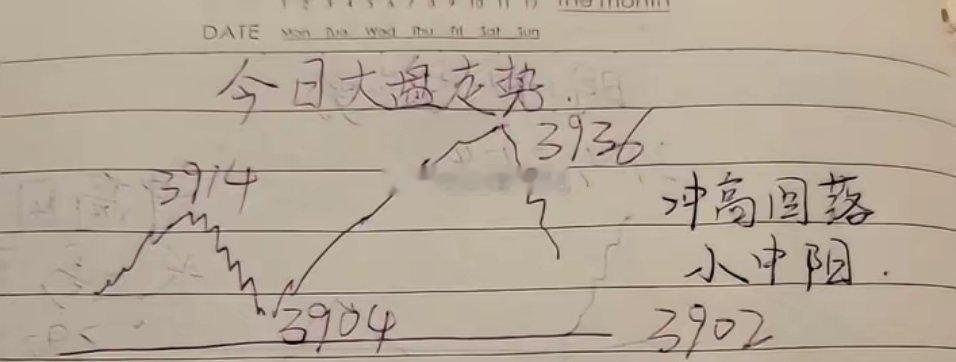 DATE Mon Tue Wed Thu Fri Sat Sun
今日大盘走势.
3936
3914
冲高回落
小中阳.
3904
3902